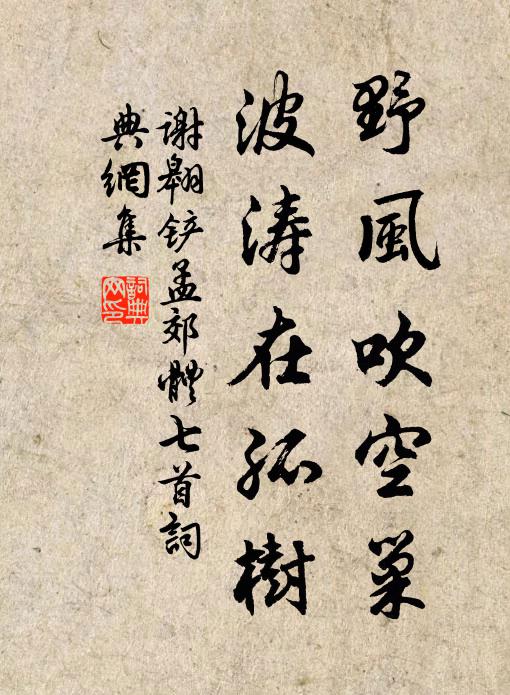 野風吹空巢
波涛在孤樹
谢翱铲孟郊體七首詞
典網集
詞典網印